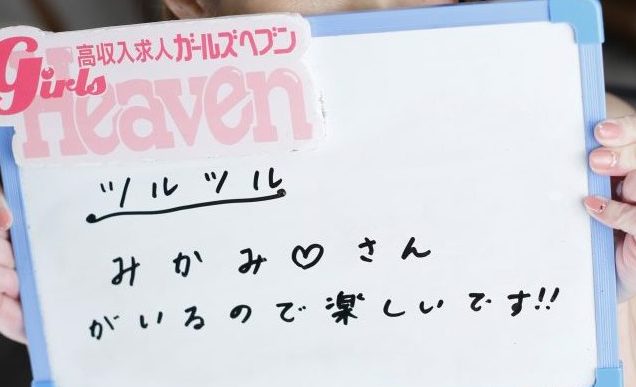 高収入求人ガールズヘブン
Girls
Heaven
ツルツル
みかみ♡さん
がいるので楽しいです!!